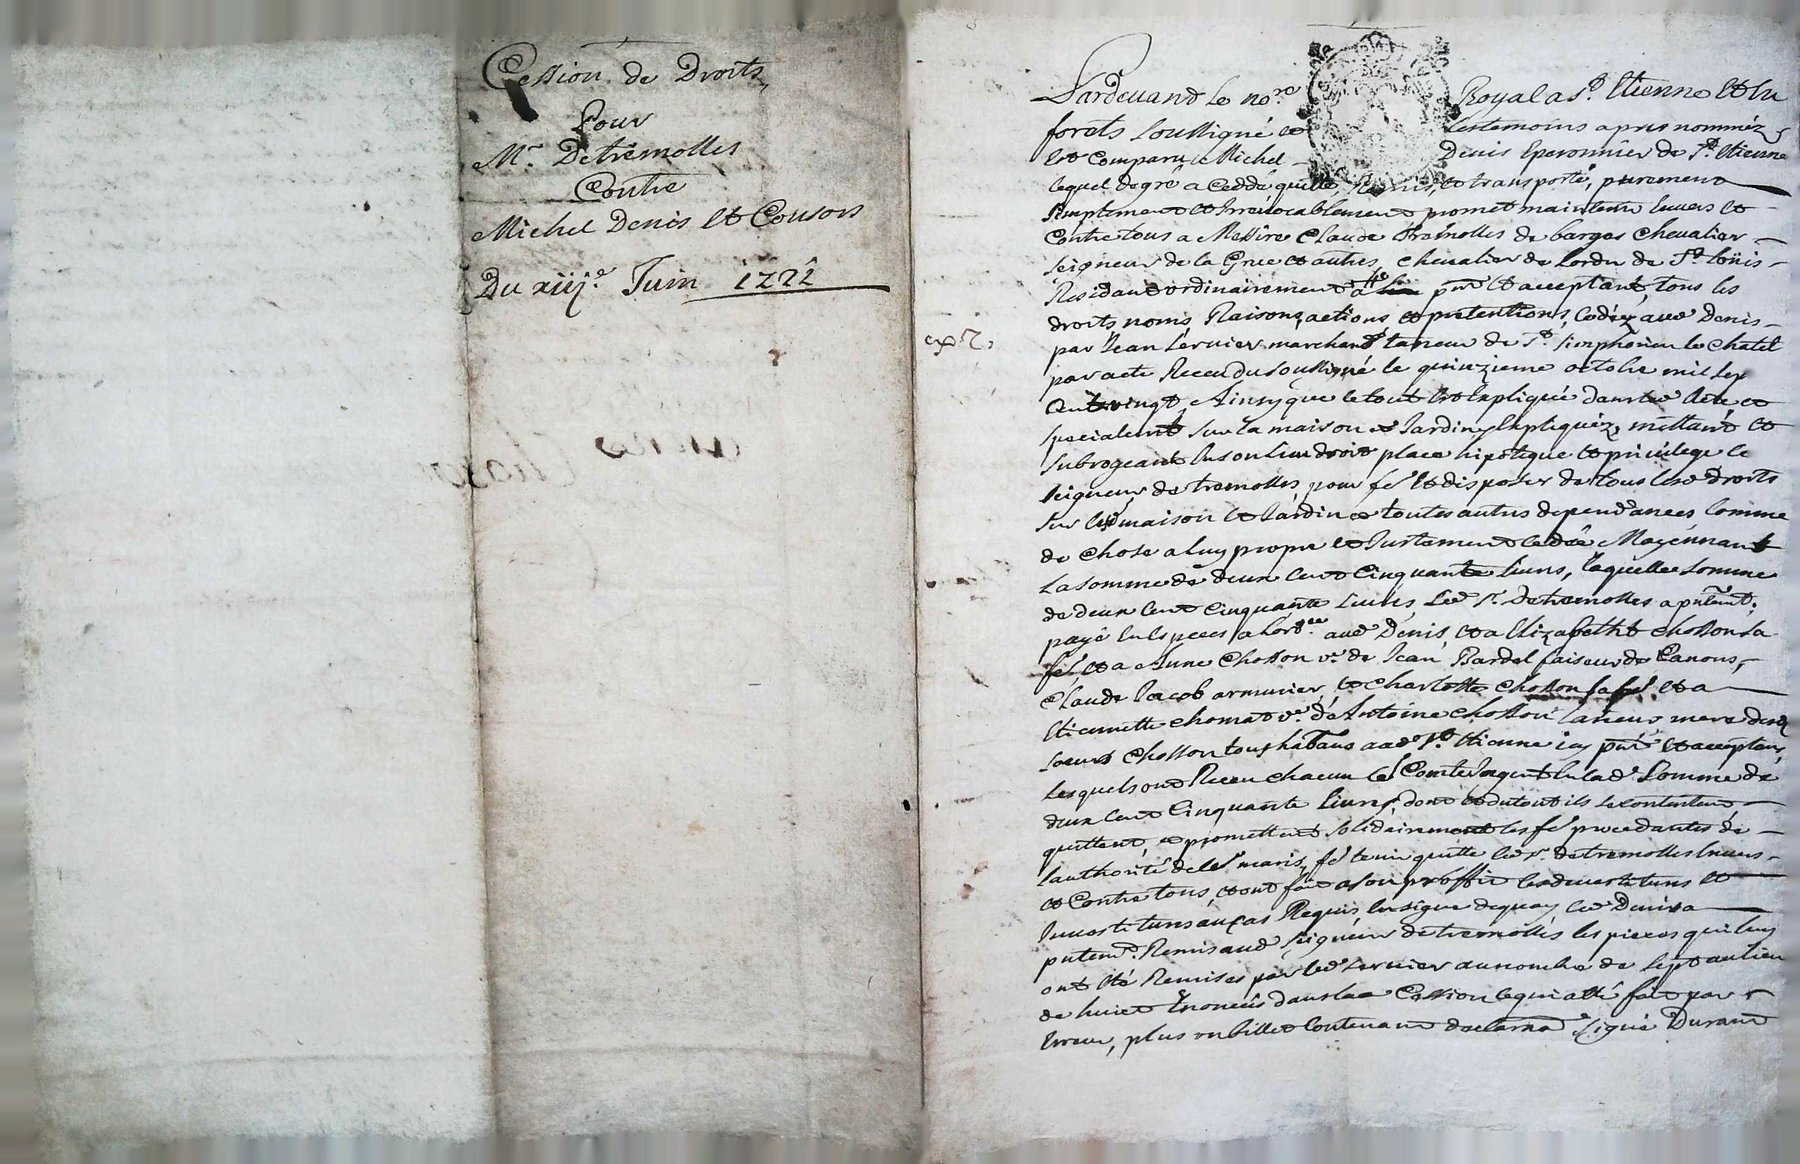 Cession de Droits
Pour
Mr. Detremolles
Contre
Michel Denis et Consors
Du xiij.e Juin 1722
Pardevand le no.re Royal a St. Etienne et en
forets soussigné et les temoins apres nomméz
Est Comparu Michel Denis Eperonnier de St. Etienne
lequel de gré a Ceddé quitte, Remis, et transporté, purement
simplement et Irrévocablement promet maintenir Envers et
Contre tous a Messire Claude Tremolles de barges Chevalier
seigneur de la et autres, chevalier de Lordre de St. Loüis
Residant ordinairement a pnt et acceptant, tous les
droits, noms, Raisons, actions et pretentions, Cedéz aud Denis
par Jean Vernier marchand taneur de St. simphorien le Chatel
par acte Receu du soussigné le quinzieme octobre mil sep
Cent vingt, Ainsy que le tout Est Expliqué dans led Acte et
specialemt sur la maison et Jardin Expliquéz, mettant et
subrogeant En son lieu droit place hipoteque et privilege le
seigneur de tremolles pour fe et disposer de tous lesd droits
sur lesd maison et Jardin et toutes autres dependances Comme
de Chose a luy propre et Justement Moyennant
La somme de deux Cent Cinquante livres, laquelle somme
de deux Cent Cinquante livres Led sr. de tremolles a pntemt.
payé En Especes aud Denis, et a Elizabeth Chosson sa
fe, et a Anne Chosson ve. de Jean Bardel faiseur de Canons,
Claude Jacob armurier, et Charlotte Chosson sa fe et a
Etiennette chomat ve. d'Antoine Chosson taneur mere desd
soeurs Chosson tous habitans aud St. Etienne icy pnts et acceptans,
lesquels ont Receu chacun les Concernant lad. somme de
deux Cent Cinquante livres, dont et du tout ils se contentent
quittent, et promettent solidairement les fes procedantes de
lauthorité de leurs maris, fe tenir quitte led sr. de tremolles Envers
et Contre tous, et ont fait a son proffit les devestitures et
Investitures au cas Requis, En signe de quoy led Denis a
pntemt. Remis aud seigneur de tremolles les pieces qui luy
ont Eté Remises par led Vernier au nombre de sept au lieu
de huict Enoncés dans lad Cession ce qui a été fait par
Erreur, plus un billet Contenant declaraon signé Durant